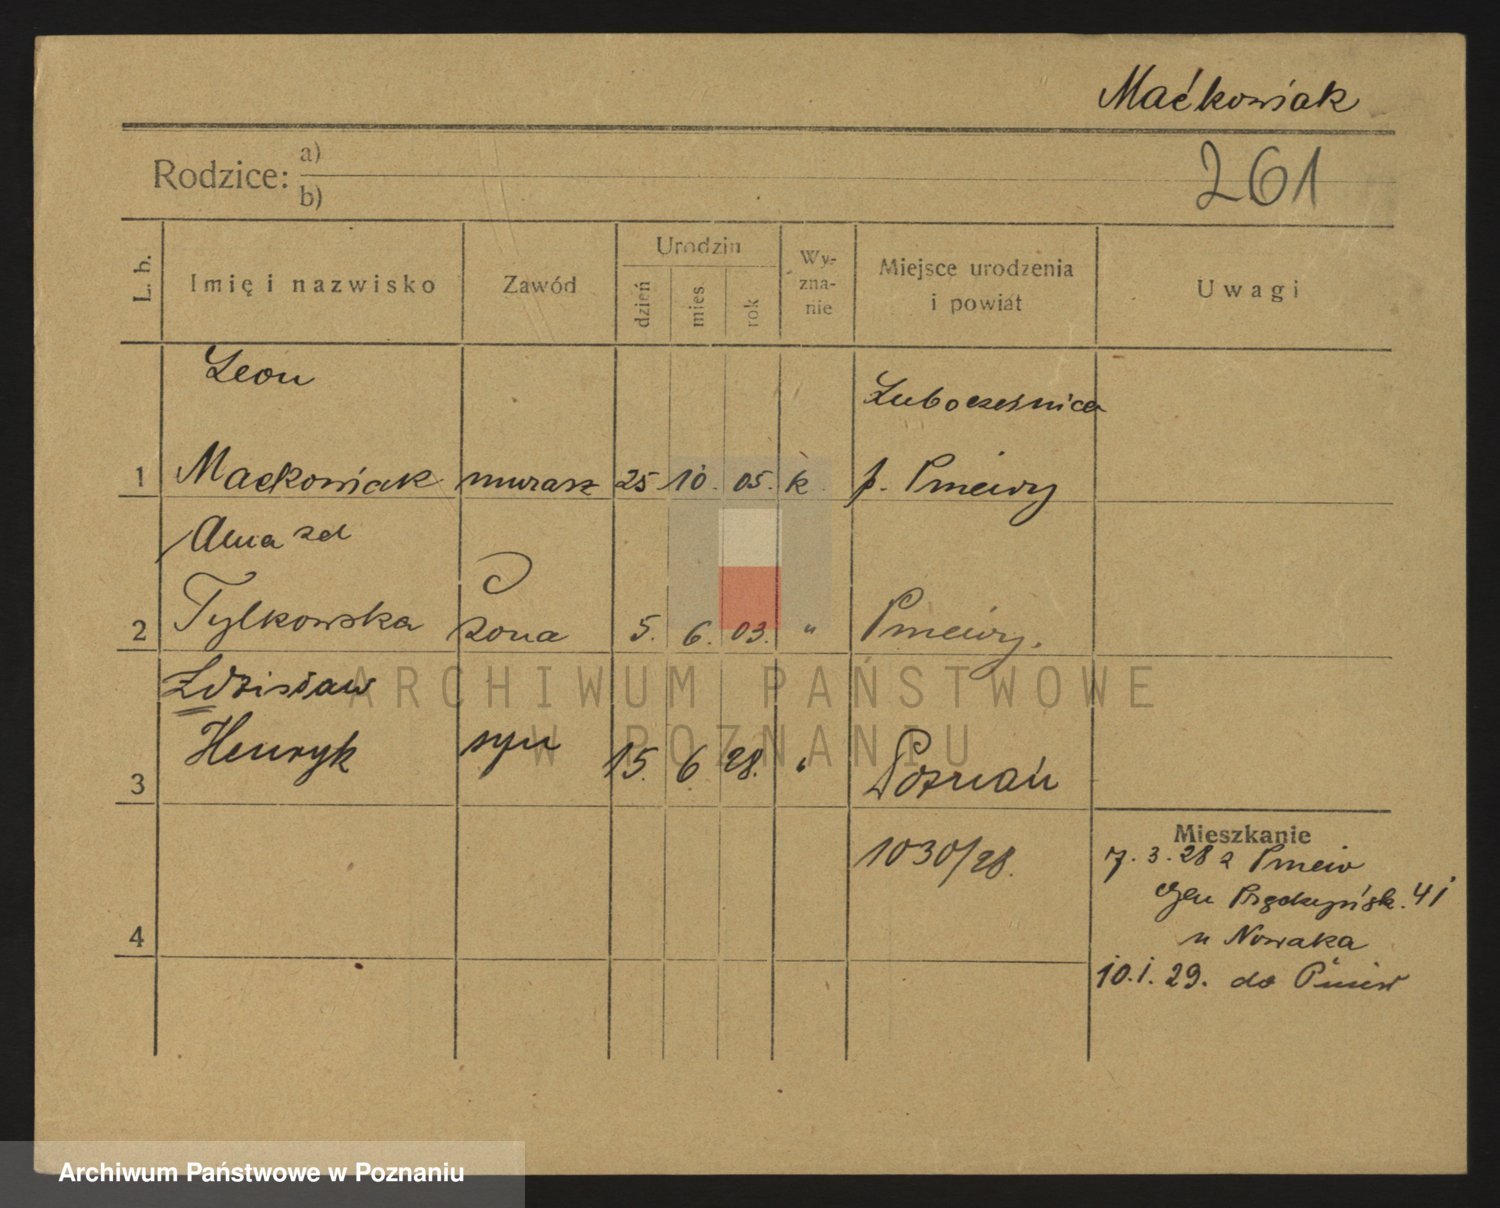 Maćkowiak
Rodzice: a)
b)
261
L. b.
Imię i nazwisko
Zawód
Urodzin
dzień
mies.
rok
Wy-
zna-
nie
Miejsce urodzenia
i powiat
Uwagi
Leon
Lubocześnica
1 Maćkowiak murarz 25 10. 05. k p. Pniewy
Anna zd
2 Tylkowska żona 5. 6. 03. " Pniewy.
Zdzisław
3 Henryk syn 15. 6 28. " Poznań
1030/28.
4
Mieszkanie
7. 3. 28 z Pniew
Gen Prądzyńsk. 41
u Nowaka
10. 1. 29. do Pniew
ARCHIWUM PAŃSTWOWE
W POZNANIU
Archiwum Państwowe w Poznaniu